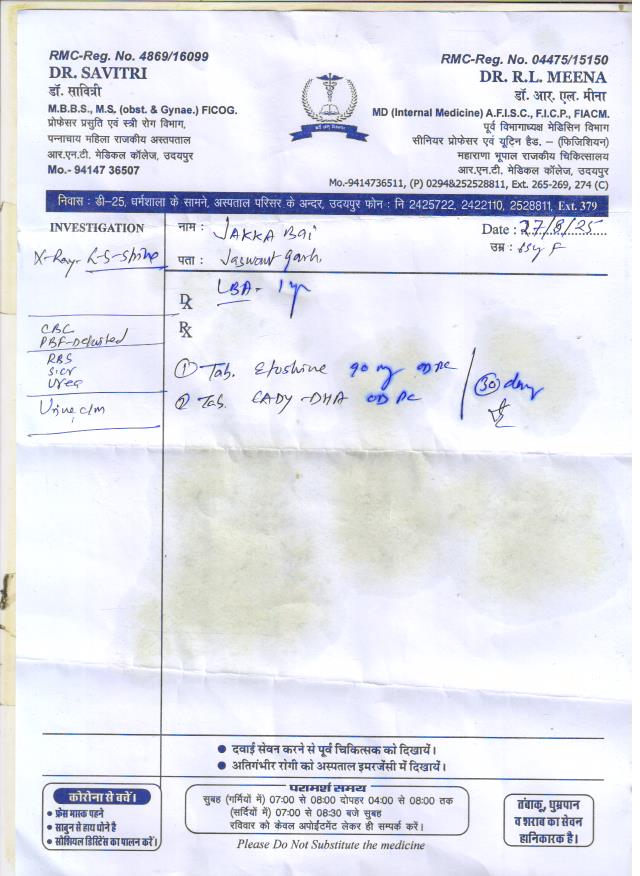 RMC-Reg. No. 4869/16099
DR. SAVITRI
डॉ. सावित्री
M.B.B.S., M.S. (obst. & Gynae.) FICOG.
प्रोफेसर प्रसुति एवं स्त्री रोग विभाग,
पन्नाधाय महिला राजकीय अस्तपताल
आर.एन.टी. मेडिकल कॉलेज, उदयपुर
Mo.- 94147 36507
RMC-Reg. No. 04475/15150
DR. R.L. MEENA
डॉ. आर. एल. मीना
MD (Internal Medicine) A.F.I.S.C., F.I.C.P., FIACM.
पूर्व विभागाध्यक्ष मेडिसिन विभाग
सीनियर प्रोफेसर एवं यूटिन हैड. – (फिजिशियन)
महाराणा भूपाल राजकीय चिकित्सालय
आर.एन.टी. मेडिकल कॉलेज, उदयपुर
Mo.-9414736511, (P) 0294&252528811, Ext. 265-269, 274 (C)
निवास : डी-25, धर्मशाला के सामने, अस्पताल परिसर के अन्दर, उदयपुर फोन : नि 2425722, 2422110, 2528811, Ext. 379
INVESTIGATION
X-Ray- L-S-Spine
CBC
PBF-
RBS
S.Cr
Urea
Urine c/m
नाम : JAKKA Bai
Date : 27/8/25
पता : Jaswant garh
उम्र : 55y F
Dx LBA- 1 yr
Rx
① Tab. Etoshine 90 mg OD PC
② Tab. CADY-DHA OD PC
30 day
● दवाई सेवन करने से पूर्व चिकित्सक को दिखायें।
● अतिगंभीर रोगी को अस्पताल इमरजेंसी में दिखायें।
कोरोना से बचें।
● फ्रेस मास्क पहने
● साबुन से हाथ धोने है
● सोशियल डिस्टेंस का पालन करें।
परामर्श समय
सुबह (गर्मियों में) 07:00 से 08:00 दोपहर 04:00 से 08:00 तक
(सर्दियों में) 07:00 से 08:30 बजे सुबह
रविवार को केवल अपोईंटमेंट लेकर ही सम्पर्क करें।
Please Do Not Substitute the medicine
तंबाकू, धुम्रपान
व शराब का सेवन
हानिकारक है।